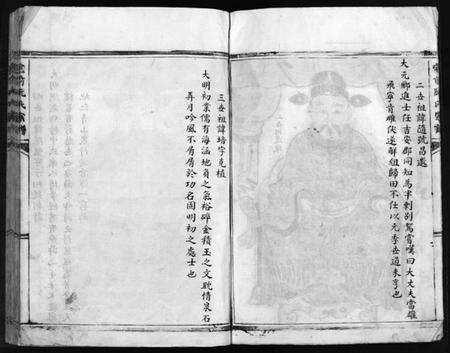 二世祖諱隨號昌遠
大元鄉進士任吉安郡同知為半刺別駕嘗嘆曰大丈夫當雄
飛寧肯雌伏遂解組歸田不仕以元季世道未亨也
三世祖諱培字克植
大明初業儒有海涵地負之氣裕碎金積玉之文耽情泉石
弄月吟風不屑屑於功名固明初之處士也